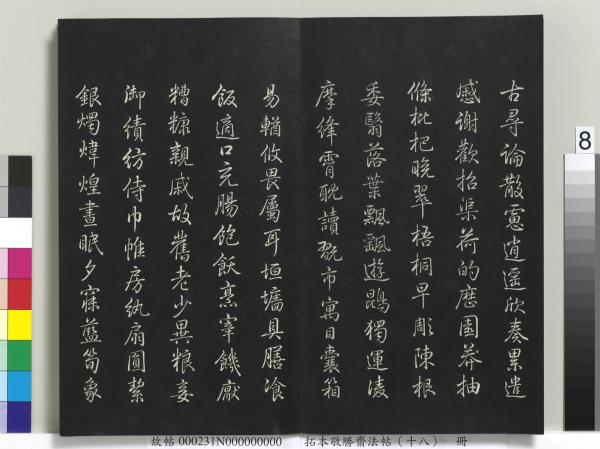 古尋論散慮逍遙欣奏累遣
慼謝歡招渠荷的歷園莽抽
條枇杷晚翠梧桐早彫陳根
委翳落葉飄飖遊鵾獨運凌
摩絳霄耽讀翫市寓目囊箱
易輶攸畏屬耳垣墻具膳飡
飯適口充腸飽飫烹宰饑厭
糟糠親戚故舊老少異粮妾
御績紡侍巾帷房紈扇圓絜
銀燭煒煌晝眠夕寐藍筍象
8
故帖 000231N000000000 拓本敬勝齋法帖(十八) 冊